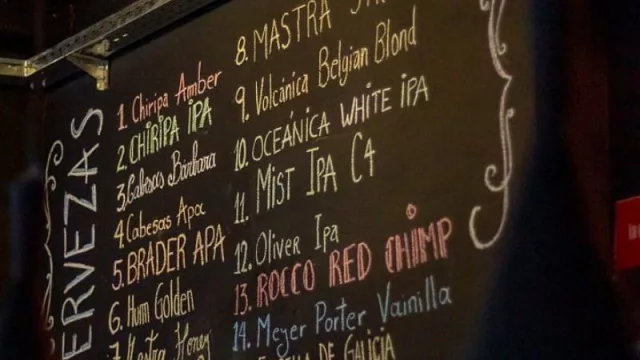 CERVEZAS
1. Chiripa Amber
2. CHIRIPA iPA
3. Cabesas Bárbara
4. Cabesas Apa
5. BRADER APA
6. Hum Golden
7. Honey
8. MASTRA
9. Volcánica Belgian Blond
10. OCEÁNICA WHITE iPA
11. Mist IPA C4
12. Oliver Ipa
13. ROCCO RED CHIMP
14. Meyer Porter Vainilla
DE GALICIA